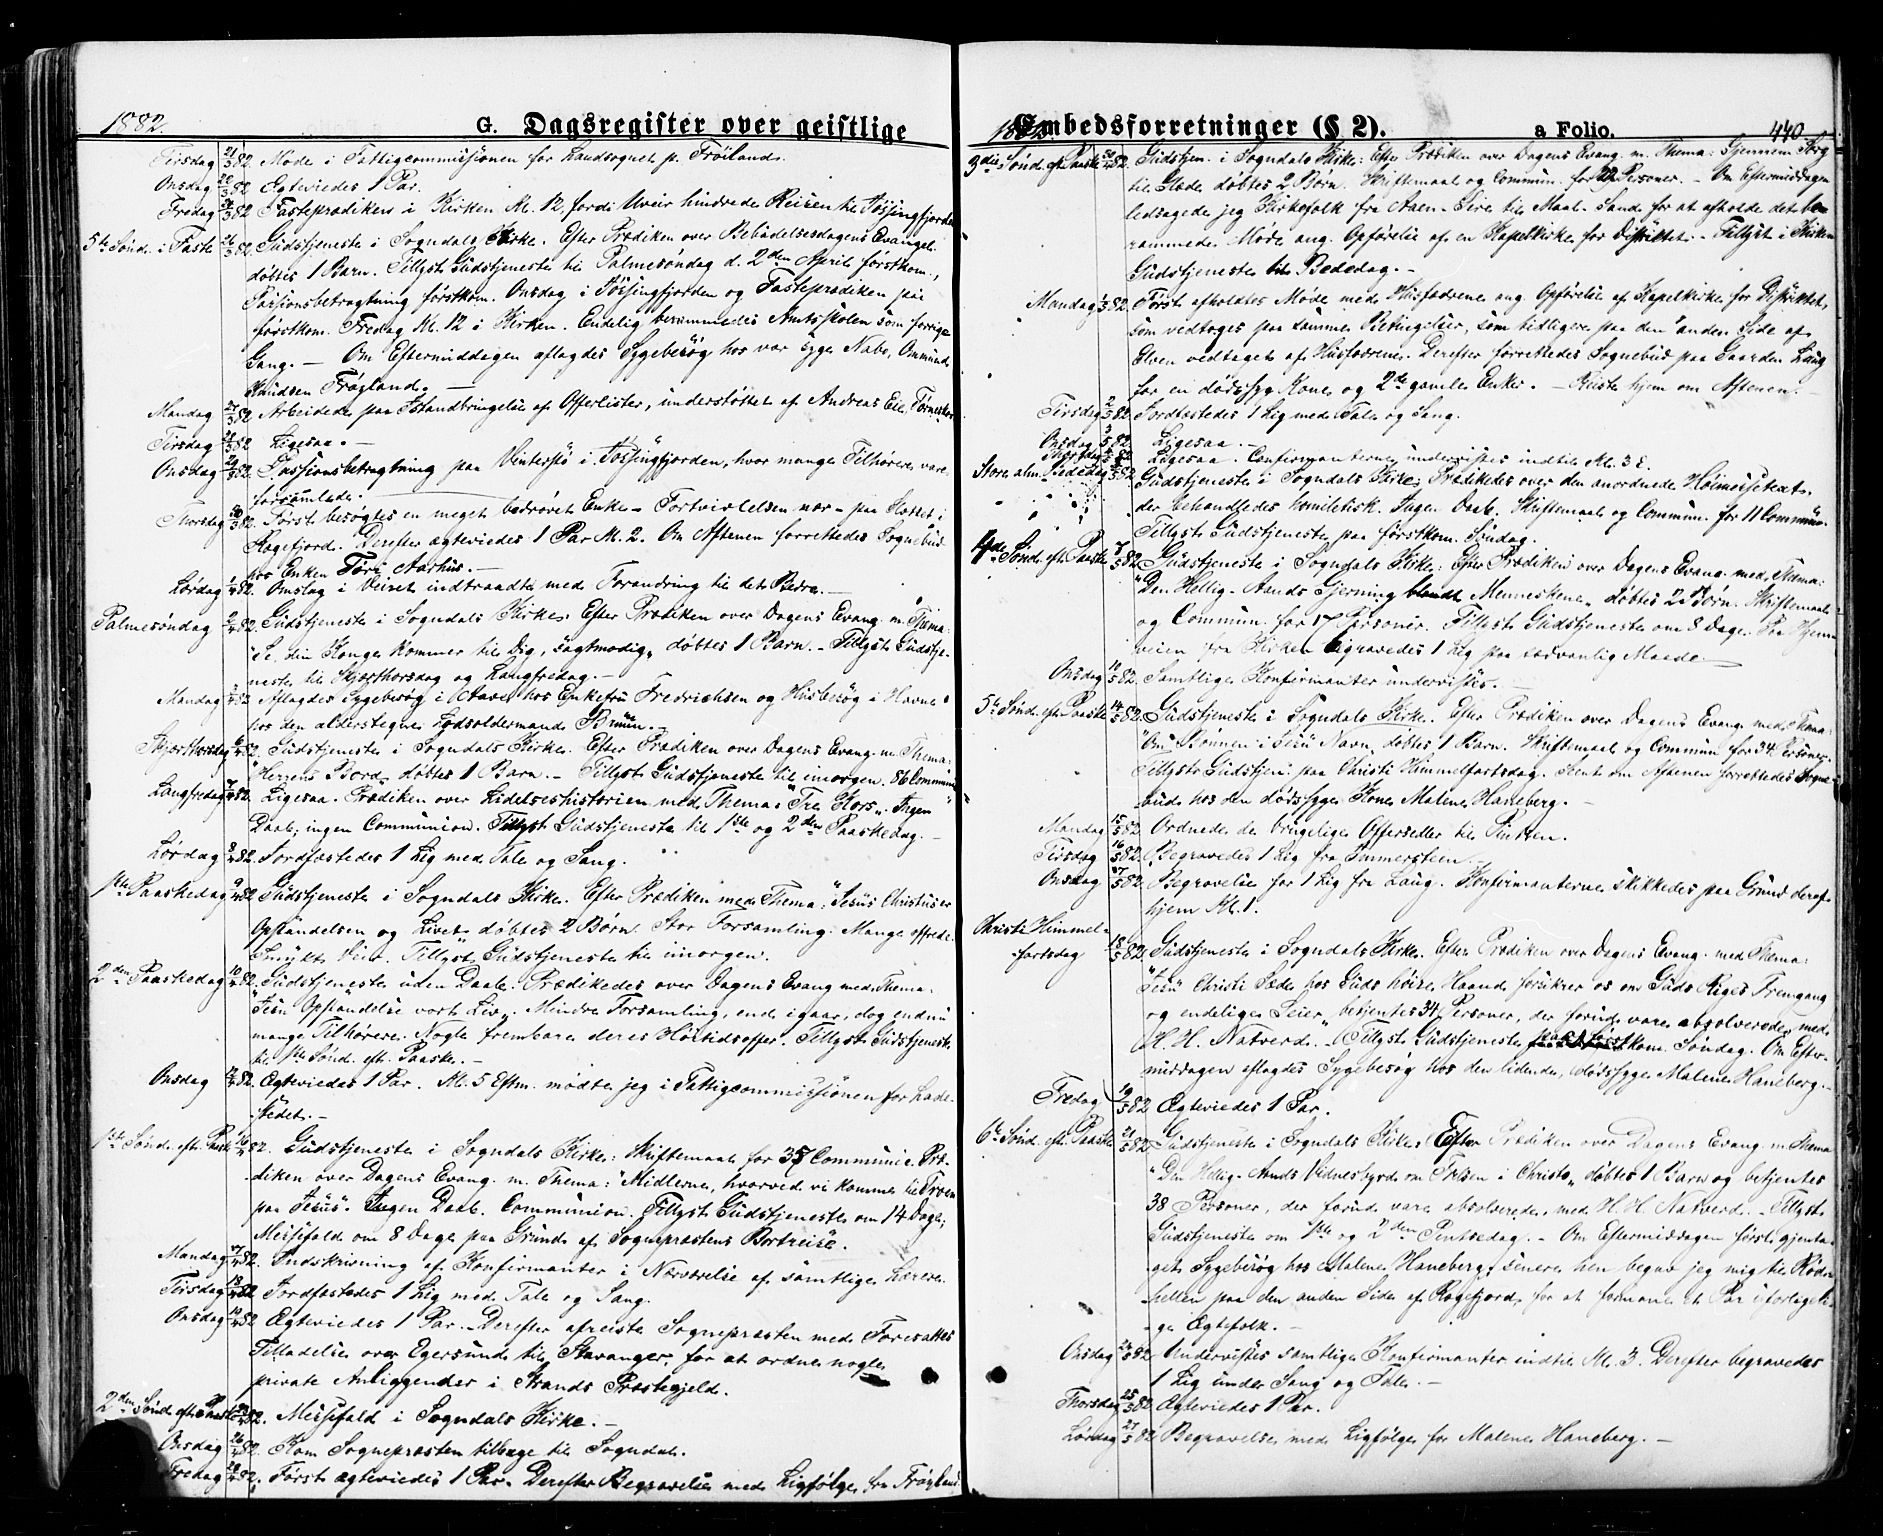 1882.
G. Dagsregister over geistlige
Tirsdag 21/3 82. Møde i Fattigcommissionen for Landsognet p. Frøiland.
Onsdag 22/3 82 Egteviedes 1 Par.
Fredag 24/3 82 Fasteprædiken i Kirken Kl. 12, fordi Uveir hindrede Reisen til Jøssingfjorden
5te Sønd. i Faste 26/3 82. Gudstjeneste i Sogndals Kirke. Efter Prædiken over Bebudelsesdagens Evangel.
døbtes 1 Barn. Tillyst Gudstjeneste til Palmesøndag d. 2den April førstkom.,
Passionsbetragtning førstkom. Onsdag i Jøssingfjorden og Fasteprædiken paa
førstkom. Fredag Kl. 12 i Kirken. Endelig berammedes Amtsskolen som forrige
Gang. — Om Eftermiddagen aflagdes Sygebesøg hos vor syge Nabo, Ommund
Knudsen Frøyland. —
Mandag 27/3 82 Arbeidede paa Istandbringelse af Offerlister, understøttet af Andreas Eie,
Tirsdag 28/3 82 Ligesaa. —
Onsdag 29/3 82. Passionsbetragtning paa Vintersjø i Jøssingfjorden, hvor mange Tilhørere vare
forsamlede.
Torsdag 30/3 82. Først besøgtes en meget bedrøvet Enke — Fortvivlelsen nær — paa Slottet i
Rægefjord. Derefter ægteviedes 1 Par Kl. 2. Om Aftenen forrettedes Sognebud
hos Enken Tori Aarhus. —
Lørdag 1/4 82. Omslag i Veiret indtraadte med Forandring til det Bedre. —
Palmesøndag 2/4 82. Gudstjeneste i Sogndals Kirke. Efter Prædiken over Dagens Evang. m. Thema:
"Se, din Konge kommer til Dig, sagtmodig" døbtes 1 Barn. — Tillyst Gudstje-
neste til Skjærthorsdag og Langfredag. —
Mandag 3/4 82 Aflagdes Sygebesøg i Aaven hos Enkefru Fredrichsen og Husbesøg i Havnen
hos den alderstegne Lodsoldermand Bruun. —
Skjærthorsdag 6/4 82. Gudstjeneste i Sogndals Kirke. Efter Prædiken over Dagens Evang. m. Thema:
"Herrens Bord" døbtes 1 Barn. — Tillyst Gudstjeneste til imorgen. 86 Communic.
Langfredag 7/4 82. Ligesaa. Prædiken over Lidelseshistorien med Thema: "Tre Kors". Ingen
Daab; ingen Communion. Tillyst Gudstjeneste til 1ste og 2den Paaskedag. —
Lørdag 8/4 82 Jordfæstedes 1 Lig med Tale og Sang.
1ste Paaskedag 9/4 82 Gudstjeneste i Sogndals Kirke. Efter Prædiken med Thema: "Jesus Christus er
Opstandelsen og Livet" døbtes 2 Børn. Stor Forsamling. Mange offrede.
Smukt Veir. Tillyst Gudstjeneste til imorgen.
2den Paaskedag 10/4 82. Gudstjeneste uden Daab. Prædikedes over Dagens Evang. med Thema:
"Jesu Opstandelse vort Liv". Mindre Forsamling, end igaar, dog endnu
mange Tilhørere. Nogle frembare deres Høitidsoffer. Tillyst Gudstjeneste
til 1ste Sønd. eft. Paaske. —
Onsdag 12/4 82. Ægteviedes 1 Par. Kl. 5 Eftm. mødte jeg i Fattigcommissionen for Lade-
stedet. —
1ste Sønd. eft. Paaske 16/4 82. Gudstjeneste i Sogndals Kirke: Skriftemaal for 35 Communic. Præ-
diken over Dagens Evang. m. Thema: "Midlerne, hvorved vi komme til Troen
paa Jesus". Ingen Daab. Communion. Tillyst Gudstjeneste om 14 Dage;
Messefald om 8 Dage paa Grund af Sognepræstens Bortreise.
Mandag 17/4 82. Indskrivning af Konfirmanter i Nærværelse af samtlige Lærere.
Tirsdag 18/4 82 Jordfæstedes 1 Lig med Tale og Sang.
Onsdag 19/4 82 Ægteviedes 1 Par. — Derefter afreiste Sognepræsten med Foresattes
Tilladelse over Egersund til Stavanger, for at ordne nogle
private Anliggender i Strands Præstegjeld.
2den Sønd. eft. Paaske 23/4 82. Messefald i Sogndals Kirke. —
Onsdag 26/4 82. Kom Sognepræsten tilbage til Sogndal.
Fredag 28/4 82. Først ægteviedes 1 Par. Derefter Begravelse med Ligfølge fra Frøyland
1882.
Embedsforretninger (§ 2).
a Folio.
440.
3die Sønd. eft. Paaske 30/4 82. Gudstjen. i Sogndals Kirke: Efter Prædiken over Dagens Evang. m. Thema: Gjennem Sorg
til Glæde døbtes 2 Børn. Skriftemaal og Commun. for 22 Personer. — Om Eftermiddagen
ledsagede jeg Kirkefolk fra Aaen-Sire til Maal-Sand for at afholde det be-
rammede Møde ang. Opførelse af en Kapelkirke for Distriktet. — Tillyst i Kirken
Gudstjeneste til Bededag. —
Mandag 1/5 82. Først afholdtes Møde med Husfædrene ang. Opførelse af Kapelkirke for Distriktet,
som vedtoges paa samme Betingelser, som tidligere paa den anden Side af
Elven vedtaget af Husfædrene. Derefter forrettedes Sognebud paa Gaarden Laug
for en dødssyg Kone og 2de gamle Enker. — Reiste hjem om Aftenen. —
Tirsdag 2/5 82. Jordfæstedes 1 Lig med Tale og Sang.
Onsdag 3/5 82. Ligesaa. —
Thorsdag 4/5 82. Ligesaa. Confirmanterne undervistes indtil Kl. 3 E.
Store alm. Bededag 5/5 82. Gudstjeneste i Sogndals Kirke: Prædikedes over den anordnede Høimessetext,
der behandledes homiletisk. Ingen Daab. Skriftemaal og Commun. for 11 Commun.
Tillyst Gudstjeneste paa førstkom. Søndag.
4de Sønd. eft. Paaske 7/5 82. Gudstjeneste i Sogndals Kirke: Efter Prædiken over Dagens Evang. med Thema:
"Den Hellig-Aands Gjerning blandt Menneskene" døbtes 2 Børn. Skriftemaal
og Commun. for 17 Personer. Tillyst Gudstjeneste om 8 Dage. Paa Hjem-
veien fra Kirken begravedes 1 Lig paa sædvanlig Maade.
Onsdag 10/5 82. Samtlige Konfirmanter undervistes. —
5te Sønd. eft. Paaske 14/5 82. Gudstjeneste i Sogndals Kirke. Efter Prædiken over Dagens Evang. med Thema:
"Om Bønnen i Jesu Navn" døbtes 1 Barn. Skriftemaal og Commun for 34 Personer.
Tillyst Gudstjen. paa Christi Himmelfartsdag. Sent om Aftenen forrettedes Sogne-
bud hos den dødssyge Kone Malene Haneberg. —
Mandag 15/5 82. Ordnede de brugelige Offersedler til Pintsen.
Tirsdag 16/5 82. Begravedes 1 Lig fra Immerstein. —
Onsdag 17/5 82. Begravelse for 1 Lig fra Laug. Konfirmanterne skikkedes paa Grund deraf
hjem Kl. 1.
Christi Himmel-
fartsdag 18/5 82. Gudstjeneste i Sogndals Kirke. Efter Prædiken over Dagens Evang. med Thema:
"Jesu Christi Sæde hos Guds høire Haand forsikrer os om Guds Riges Fremgang
og endelige Seier" betjentes 34 Personer, der forud vare absolverede, med
H. H. Natverd. — Tillyst Gudstjeneste førstkom. Søndag. Om Efter-
middagen aflagdes Sygebesøg hos den lidende, dødssyge Malene Haneberg. —
Fredag 19/5 82 Ægteviedes 1 Par.
6te Sønd. eft. Paaske 21/5 82. Gudstjeneste i Sogndals Kirke: Efter Prædiken over Dagens Evang. m. Thema
"Den Hellig-Aands Vidnesbyrd om Frelsen i Christo" døbtes 1 Barn og betjentes
38 Personer, der forud vare absolverede, med H. H. Natverd. — Tillyst
Gudstjeneste om 1ste og 2den Pintsedag. — Om Eftermiddagen først gjenta-
get Sygebesøg hos Malene Haneberg; senere hen begav jeg mig til
hellen paa den anden Side af Rægefjord, for at formane et Par uforligeli-
ge Ægtefolk. —
Onsdag 24/5 82 Undervistes samtlige Konfirmanter indtil Kl. 3. Derefter begravedes
1 Lig under Sang og Tale. —
Thorsdag 25/5 82. Ægteviedes 1 Par.
Lørdag 27/5 82 Begravelse med Ligfølge for Malene Haneberg. —